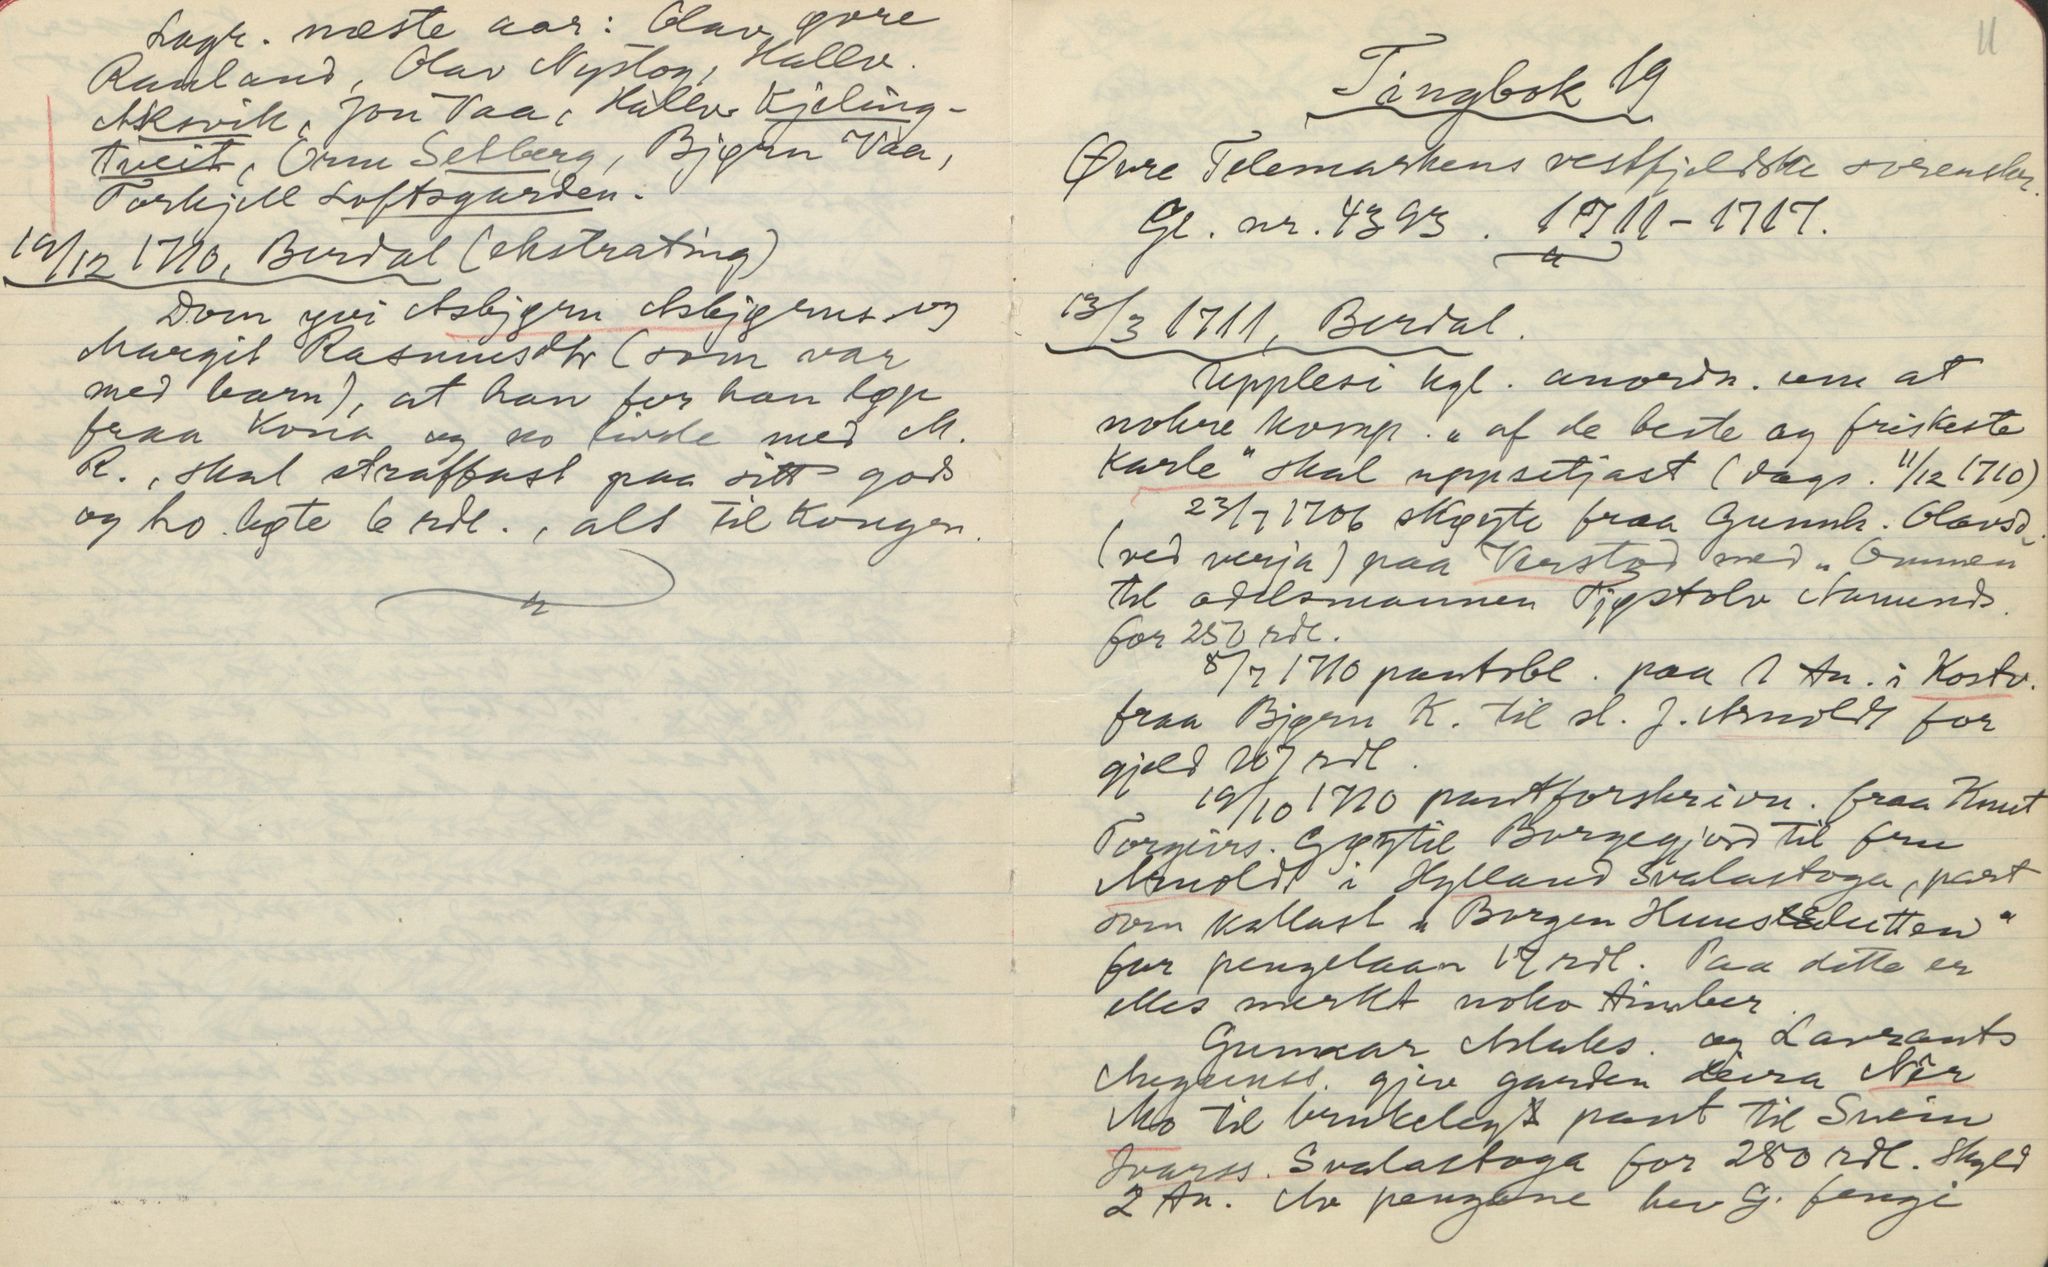 Lagr. næste aar: Olav øvre
Rauland, Olav Nystog, Hallv.
Aksvik, Jon Vaa, Hallv. Kjeling-
tveit, Orm Selberg, Bjørn Vaa,
Torkjell Loftsgarden.
19/12 1710, Berdal (ekstrating)
Dom yvi Asbjørn Asbjørns. og
Margit Rasmusdtr (som var
med barn), at han for han løp
fraa kona og so livde med M.
R., skal straffast paa sitt gods
og ho bøte 6 rdl., alt til Kongen.
11
Tingbok 19
Øvre Telemarkens vestfjeldske sorenskr.
Gl. nr. 4393. 1711-1717.
13/3 1711, Berdal.
Upplesi kgl. anordn. um at
nokre komp. "af de beste og friskeste
Karle" skal uppsetjast (dags. 11/12 1710)
23/7 1706 skøyte fraa Gunnh. Olavsd.
(ved verja) paa Verstad med "Ommen"
til odelsmannen Tjøstolv Aamunds.
for 250 rdl.
8/7 1710 pantobl. paa 1 tn. i Kostv.
fraa Bjørn K. til sl. J. Arnoldt for
gjeld 207 rdl.
19/10 1710 pantforskrivn. fraa Knut
Torgeirs. Gøytil Borgegjord til fru
Arnoldt i Hylland Svalastoga, part
som kallast "Borgen Huuslutten"
for pengelaan 17 rdl. Paa dette er
elles merkt noko timber.
Gunnar Aslaks. og Lavrants
Øygeinss. gjev garden deira Nir
Mo til brukeleg pant til Svein
Ivarss. Svalastoga for 280 rdl. Skyld
2 tn. Av pengane hev G. fengi